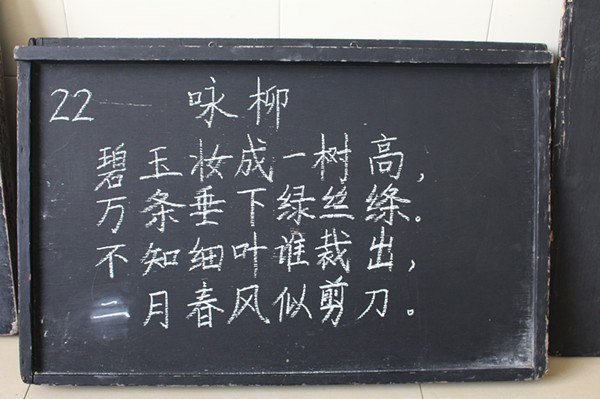 22 咏柳
碧玉妆成一树高，
万条垂下绿丝绦。
不知细叶谁裁出，
二月春风似剪刀。